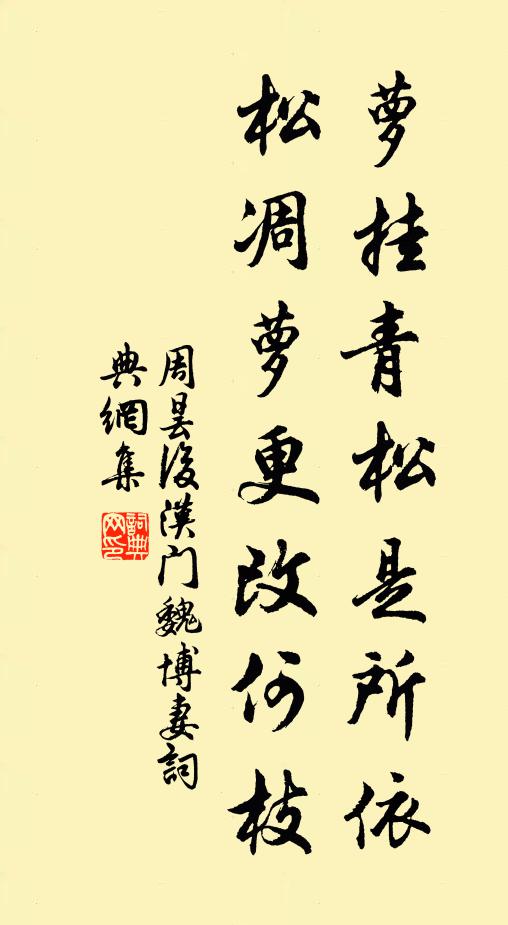 萝挂青松是所依
松凋萝更改何枝
周昙後漢门魏博妻詞
典網集
詞典
网印